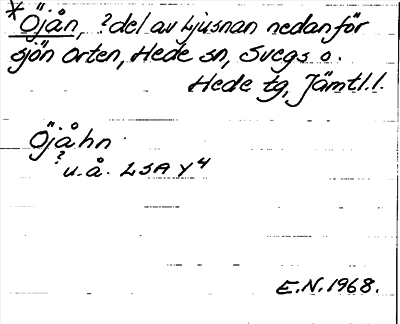 *Öjån, ?del av Ljusnan nedanför
sjön Orten, Hede sn, Svegs o.
Hede tg, Jämtl.l.
Öjåhn
? u. å. LSA Y4
E.N. 1968.